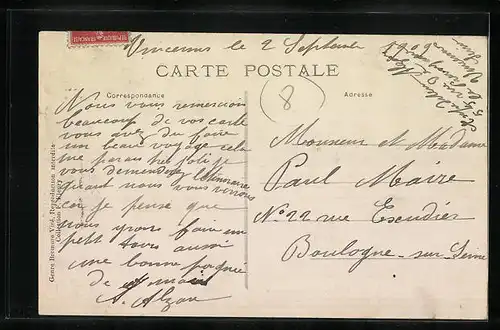 Vincennes le 2 Septembre 1909
CARTE POSTALE
Correspondance
Adresse
8
Nous vous remercions
beaucoup de vos carte
vous avez du faire
un beau voyage cela
me parais très joli je
vous demanderez l'itinéraire
quant nous vous verrons
car je pense que
nous irons faire un
petit tours aussi
une bonne poignée
de main
A.
Monsieur et Madame
Paul Maire
N° 22 rue Escudier
Boulogne-sur-Seine
Genre Bromure Vité, Reproduction interdite
Collection